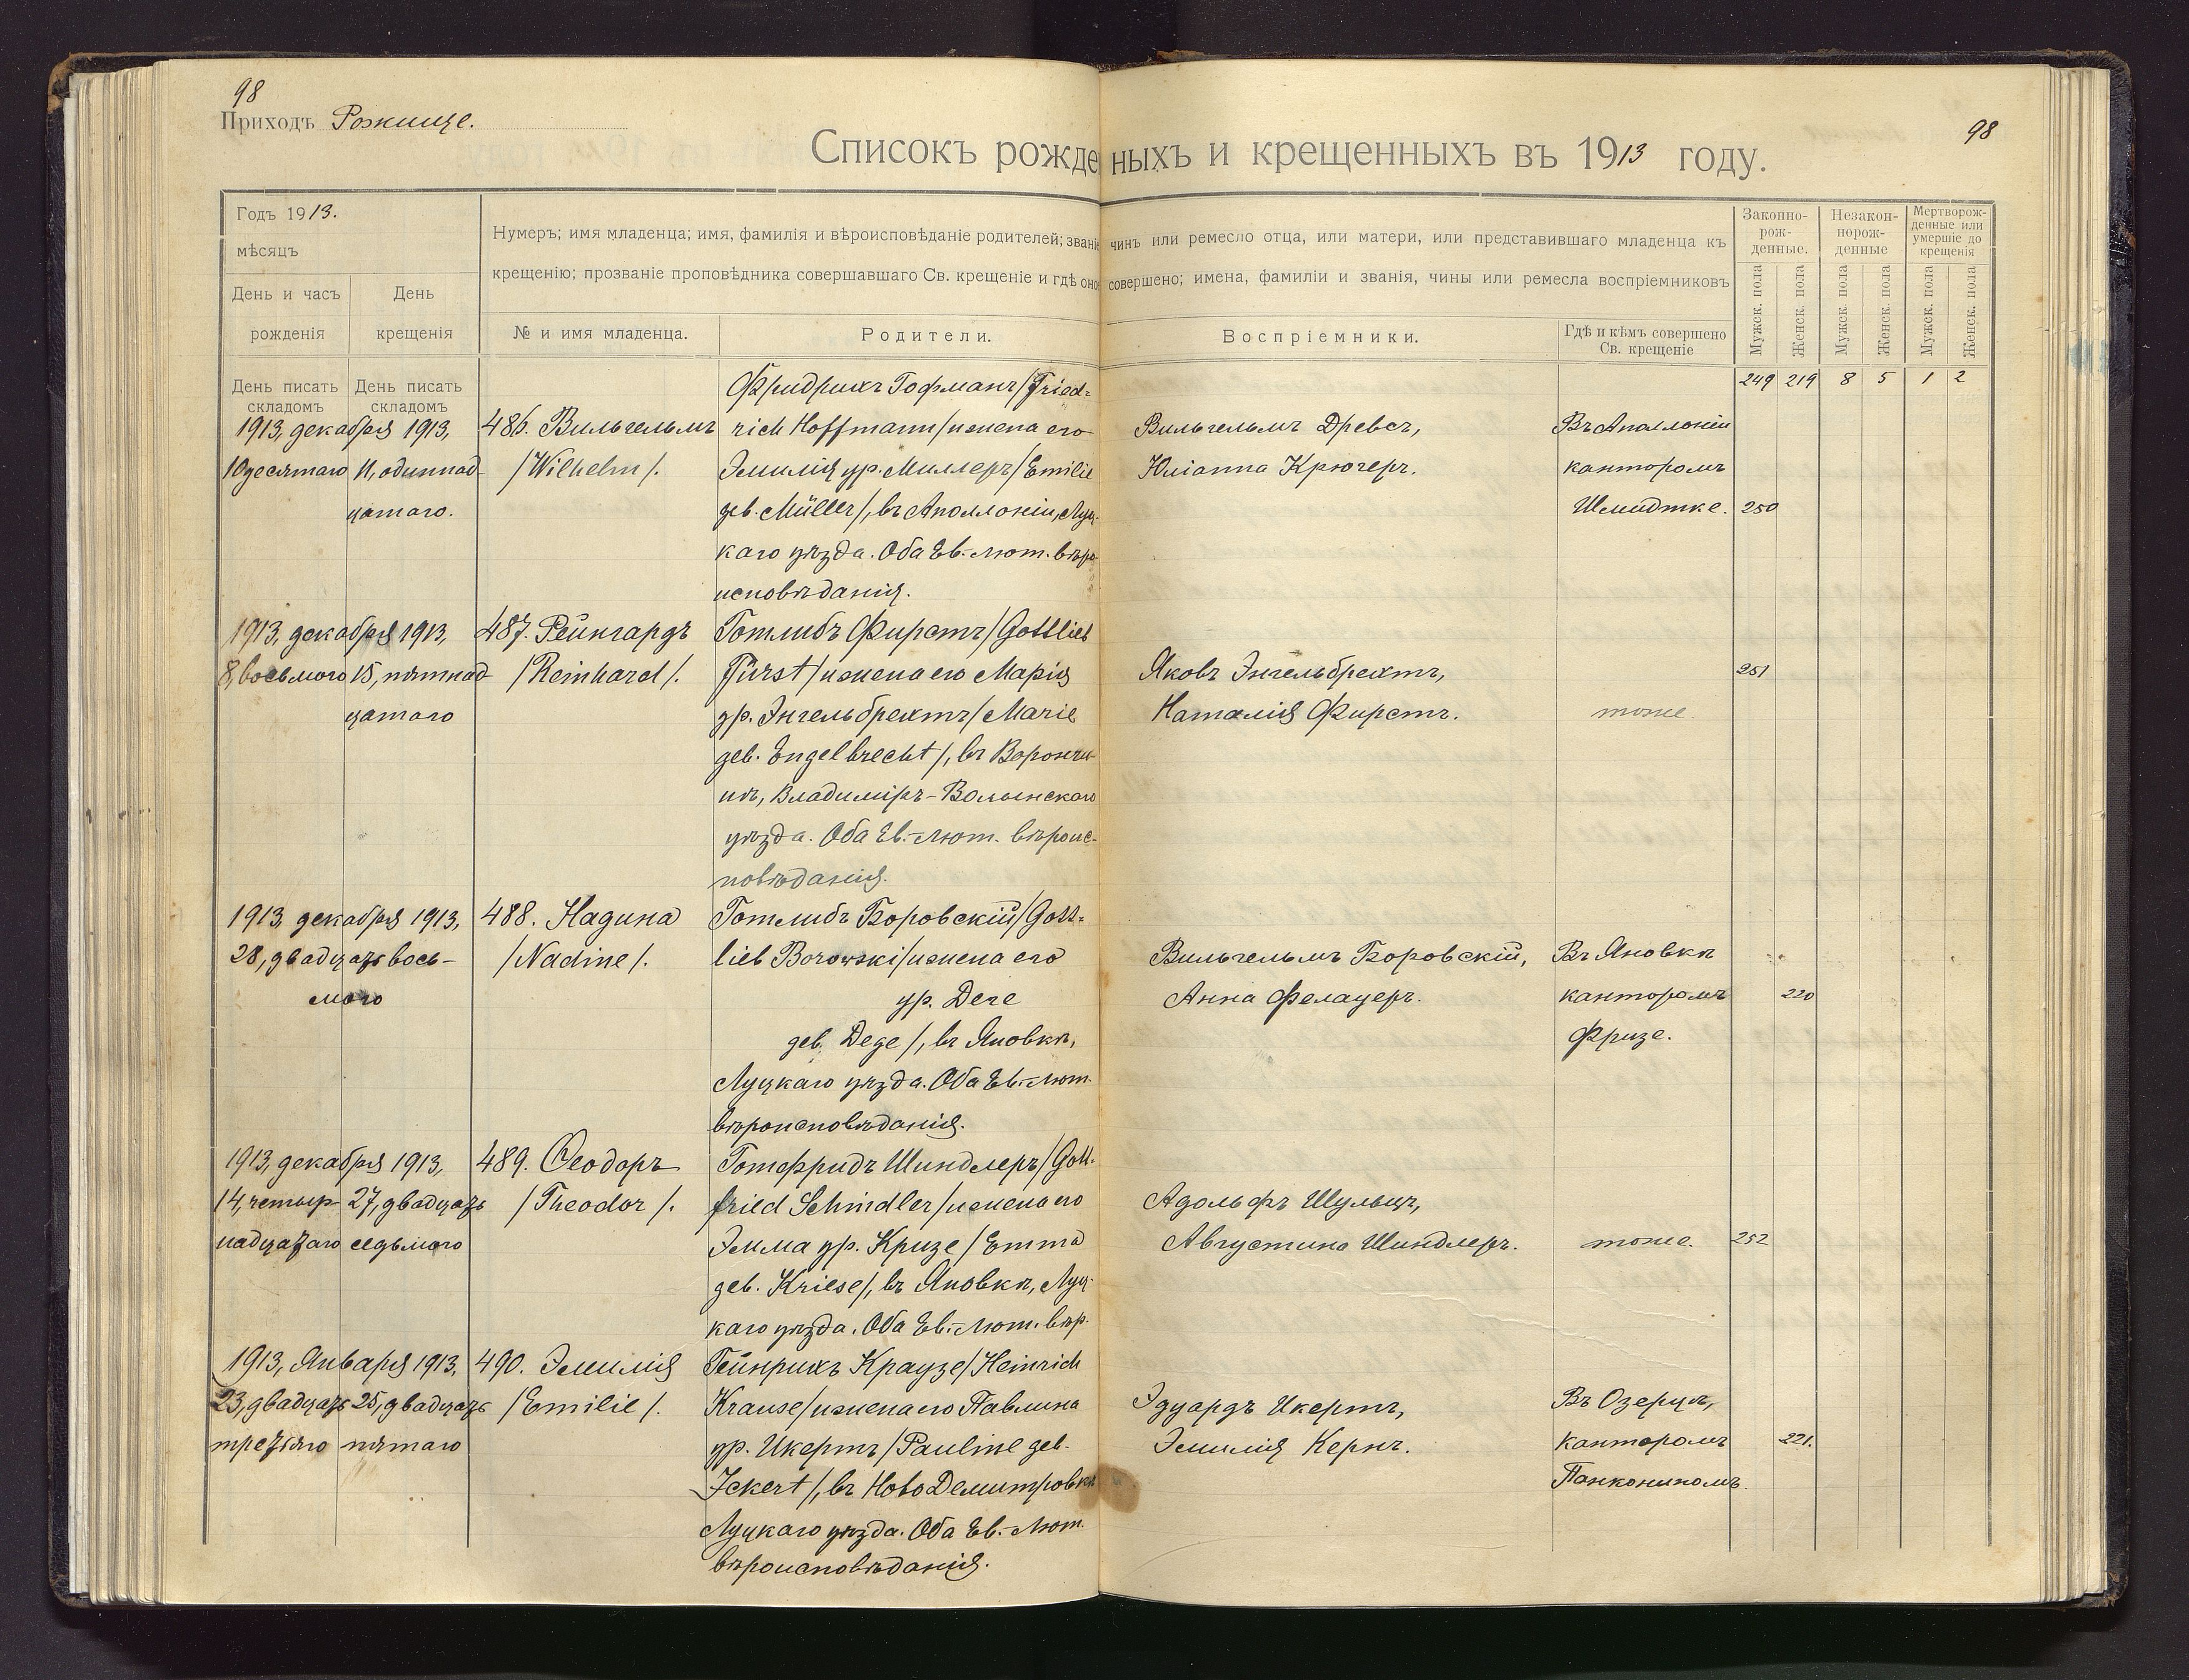 98
Приходъ Рожище.
98
Списокъ рожденныхъ и крещенныхъ въ 1913 году.
Годъ 1913.
мѣсяцъ
День и часъ рожденія
День крещенія
Нумеръ; имя младенца; имя, фамилія и вѣроисповѣданіе родителей; званіе чинъ или ремесло отца, или матери, или представившаго младенца къ
крещенію; прозваніе проповѣдника совершавшаго Св. крещеніе и гдѣ оно совершено; имена, фамиліи и званія, чины или ремесла воспріемниковъ
№ и имя младенца.
Родители.
Воспріемники.
Гдѣ и кѣмъ совершено
Св. крещеніе
Законно-
рож-
денные.
Незакон-
норож-
денные
Мертворож-
денные или
умершіе до
крещенія
Мужск. пола
Женск. пола
Мужск. пола
Женск. пола
Мужск. пола
Женск. пола
День писать
складомъ
День писать
складомъ
249 219 8 5 1 2
1913, декабря 1913,
10 десятаго 11, одиннад-
цатаго.
486. Вильгельмъ
/Wilhelm/.
Фридрихъ Гофманъ/Fried-
rich Hoffmann/и жена его
Эмилія ур. Миллеръ/Emilie
geb. Müller/, въ Аполлоніи, Луц-
каго уѣзда. Оба Ев.-лют. вѣро-
исповѣданія.
Вильгельмъ Древсъ,
Юліанна Крюгеръ.
Въ Аполлоніи
канторомъ
Шмидтке.
250
1913, декабря 1913,
8, восьмого 15, пятнад
цатаго
487. Рейнгардъ
/Reinhard/.
Готлибъ Фирстъ/Gottlieb
Fürst/и жена его Марія
ур. Энгельбрехтъ/Marie
geb. Engelbrecht/, въ Ворончи-
нѣ, Владиміръ-Волынскаго
уѣзда. Оба Ев.-лют. вѣроис-
повѣданія.
Яковъ Энгельбрехтъ,
Наталія Фирстъ.
тоже.
251
1913, декабря 1913,
28, двадцать вось-
мого
488. Надина
/Nadine/.
Готлибъ Боровскій/Gott-
lieb Borowski/и жена его
ур. Деге
geb. Dege/, въ Яновкѣ,
Луцкаго уѣзда. Оба Ев.-лют.
вѣроисповѣданія.
Вильгельмъ Боровскій,
Анна Фелауеръ.
Въ Яновкѣ
канторомъ
Фризе.
220
1913, декабря 1913,
14, четыр- 27, двадцать
надцатаго седьмого
489. Ѳеодоръ
/Theodor/.
Готфридъ Шиндлеръ/Gott-
fried Schindler/и жена его
Эмма ур. Кризе/Emma
geb. Kriese/, въ Яновкѣ, Луц-
каго уѣзда. Оба Ев.-лют. вѣр.
Адольфъ Шульцъ,
Августина Шиндлеръ.
тоже.
252
1913, Января 1913,
23, двадцать 25, двадцать
третьяго пятаго
490. Эмилія
/Emilie/.
Гейнрихъ Краузе/Heinrich
Krause/и жена его Павлина
ур. Икертъ/Pauline geb.
Ickert/, въ Ново Демитровкѣ
Луцкаго уѣзда. Оба Ев.-лют.
вѣроисповѣданія.
Эдуардъ Икертъ,
Эмилія Кернъ.
Въ Озерцѣ,
канторомъ
Панконикомъ.
221.